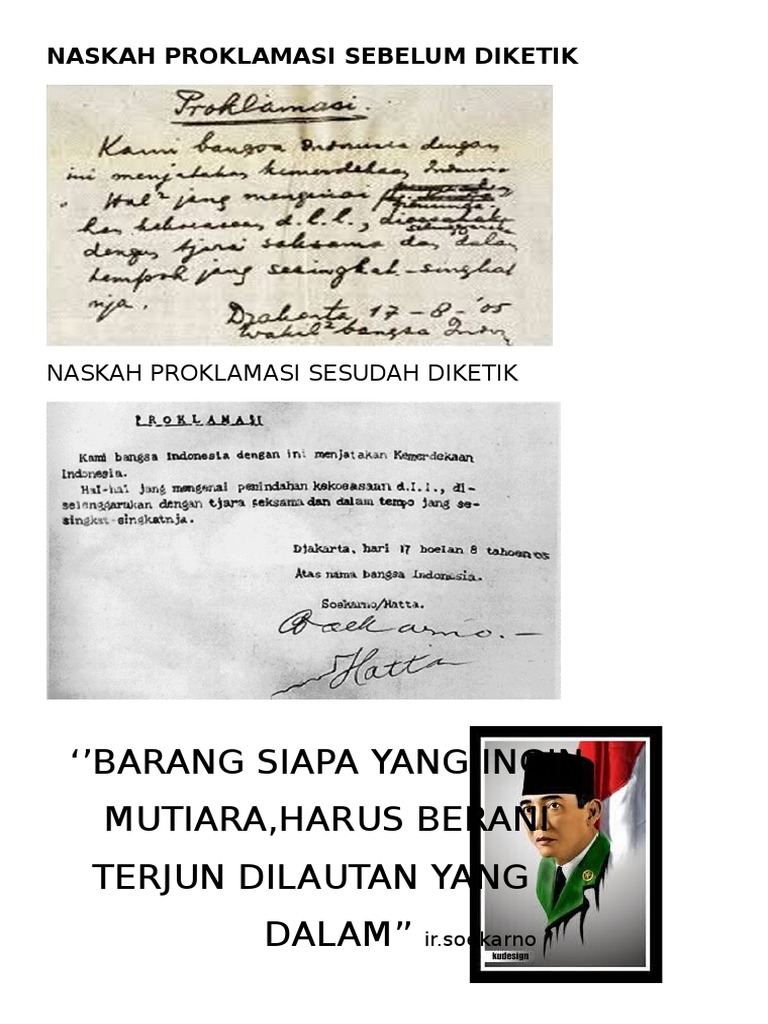 NASKAH PROKLAMASI SEBELUM DIKETIK
Proklamasi.
Kami bangsa Indonesia dengan
ini menjatakan kemerdekaan Indonesia
Hal² jang mengenai
kekoeasaan d.l.l., diselenggarakan
dengan tjara saksama dan dalam
tempoh jang sesingkat-singkat
nja.
Djakarta 17-8-'05
Wakil² bangsa Indon
NASKAH PROKLAMASI SESUDAH DIKETIK
P R O K L A M A S I
Kami bangsa Indonesia dengan ini menjatakan Kemerdekaan
Indonesia.
Hal-hal jang mengenai pemindahan kekoeasaan d.l.l., di-
selenggarakan dengan tjara seksama dan dalam tempo jang se-
singkat-singkatnja.
Djakarta, hari 17 boelan 8 tahoen 05
Atas nama bangsa Indonesia.
Soekarno/Hatta.
Soekarno.-
Hatta
‘’BARANG SIAPA YANG INGIN
MUTIARA,HARUS BERANI
TERJUN DILAUTAN YANG
DALAM” ir.soekarno
kudesign